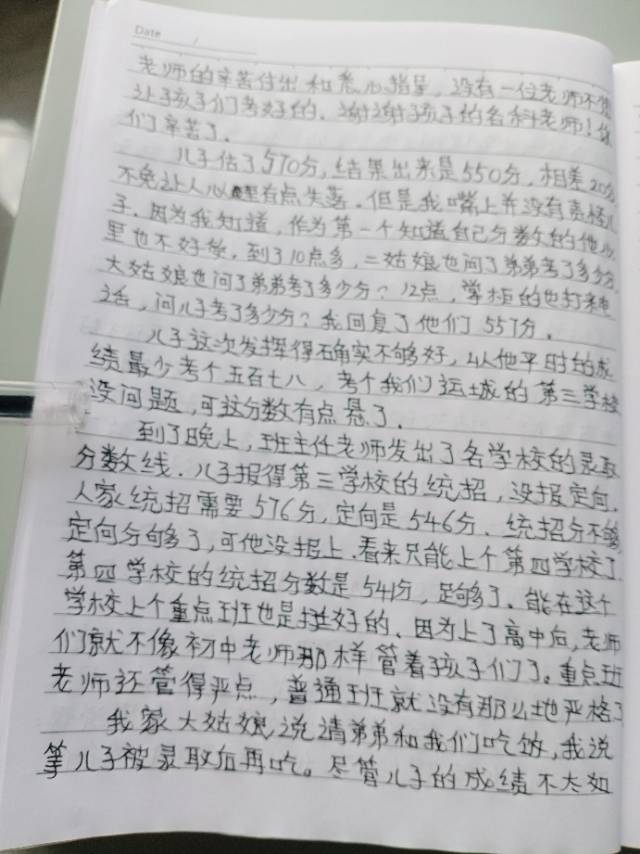 Date /
老师的辛苦付出和悉心指导，没有一位老师不想
让孩子们考好的．谢谢孩子的各科老师！你
们辛苦了．
儿子估了570分，结果出来是550分，相差20分
不免让人心里有点失落．但是我嘴上并没有责怪儿
子．因为我知道，作为第一个知道自己分数的他心
里也不好受，到了10点多，二姑娘也问了弟弟考了多少分
大姑娘也问了弟弟考了多少分？12点，学校的也打来电
话，问儿子考了多少分？我回复了他们557分．
儿子这次发挥得确实不够好，从他平时的成
绩最少考个五百七八，考个我们运城的第三学校
没问题，可这分数有点悬了．
到了晚上，班主任老师发出了各学校的录取
分数线．儿子报得第三学校的统招，没报定向．
人家统招需要576分，定向是546分．统招分不够
定向分够了，可他没报上．看来只能上个第四学校了
第四学校的统招分数是541分，足够了．能在这个
学校上个重点班也是挺好的．因为上了高中后，老师
们就不像初中老师那样管着孩子们了。重点班
老师还管得严点，普通班就没有那么地严格了
我家大姑娘说请弟弟和我们吃饭，我说
等儿子被录取后再吃。尽管儿子的成绩不太如